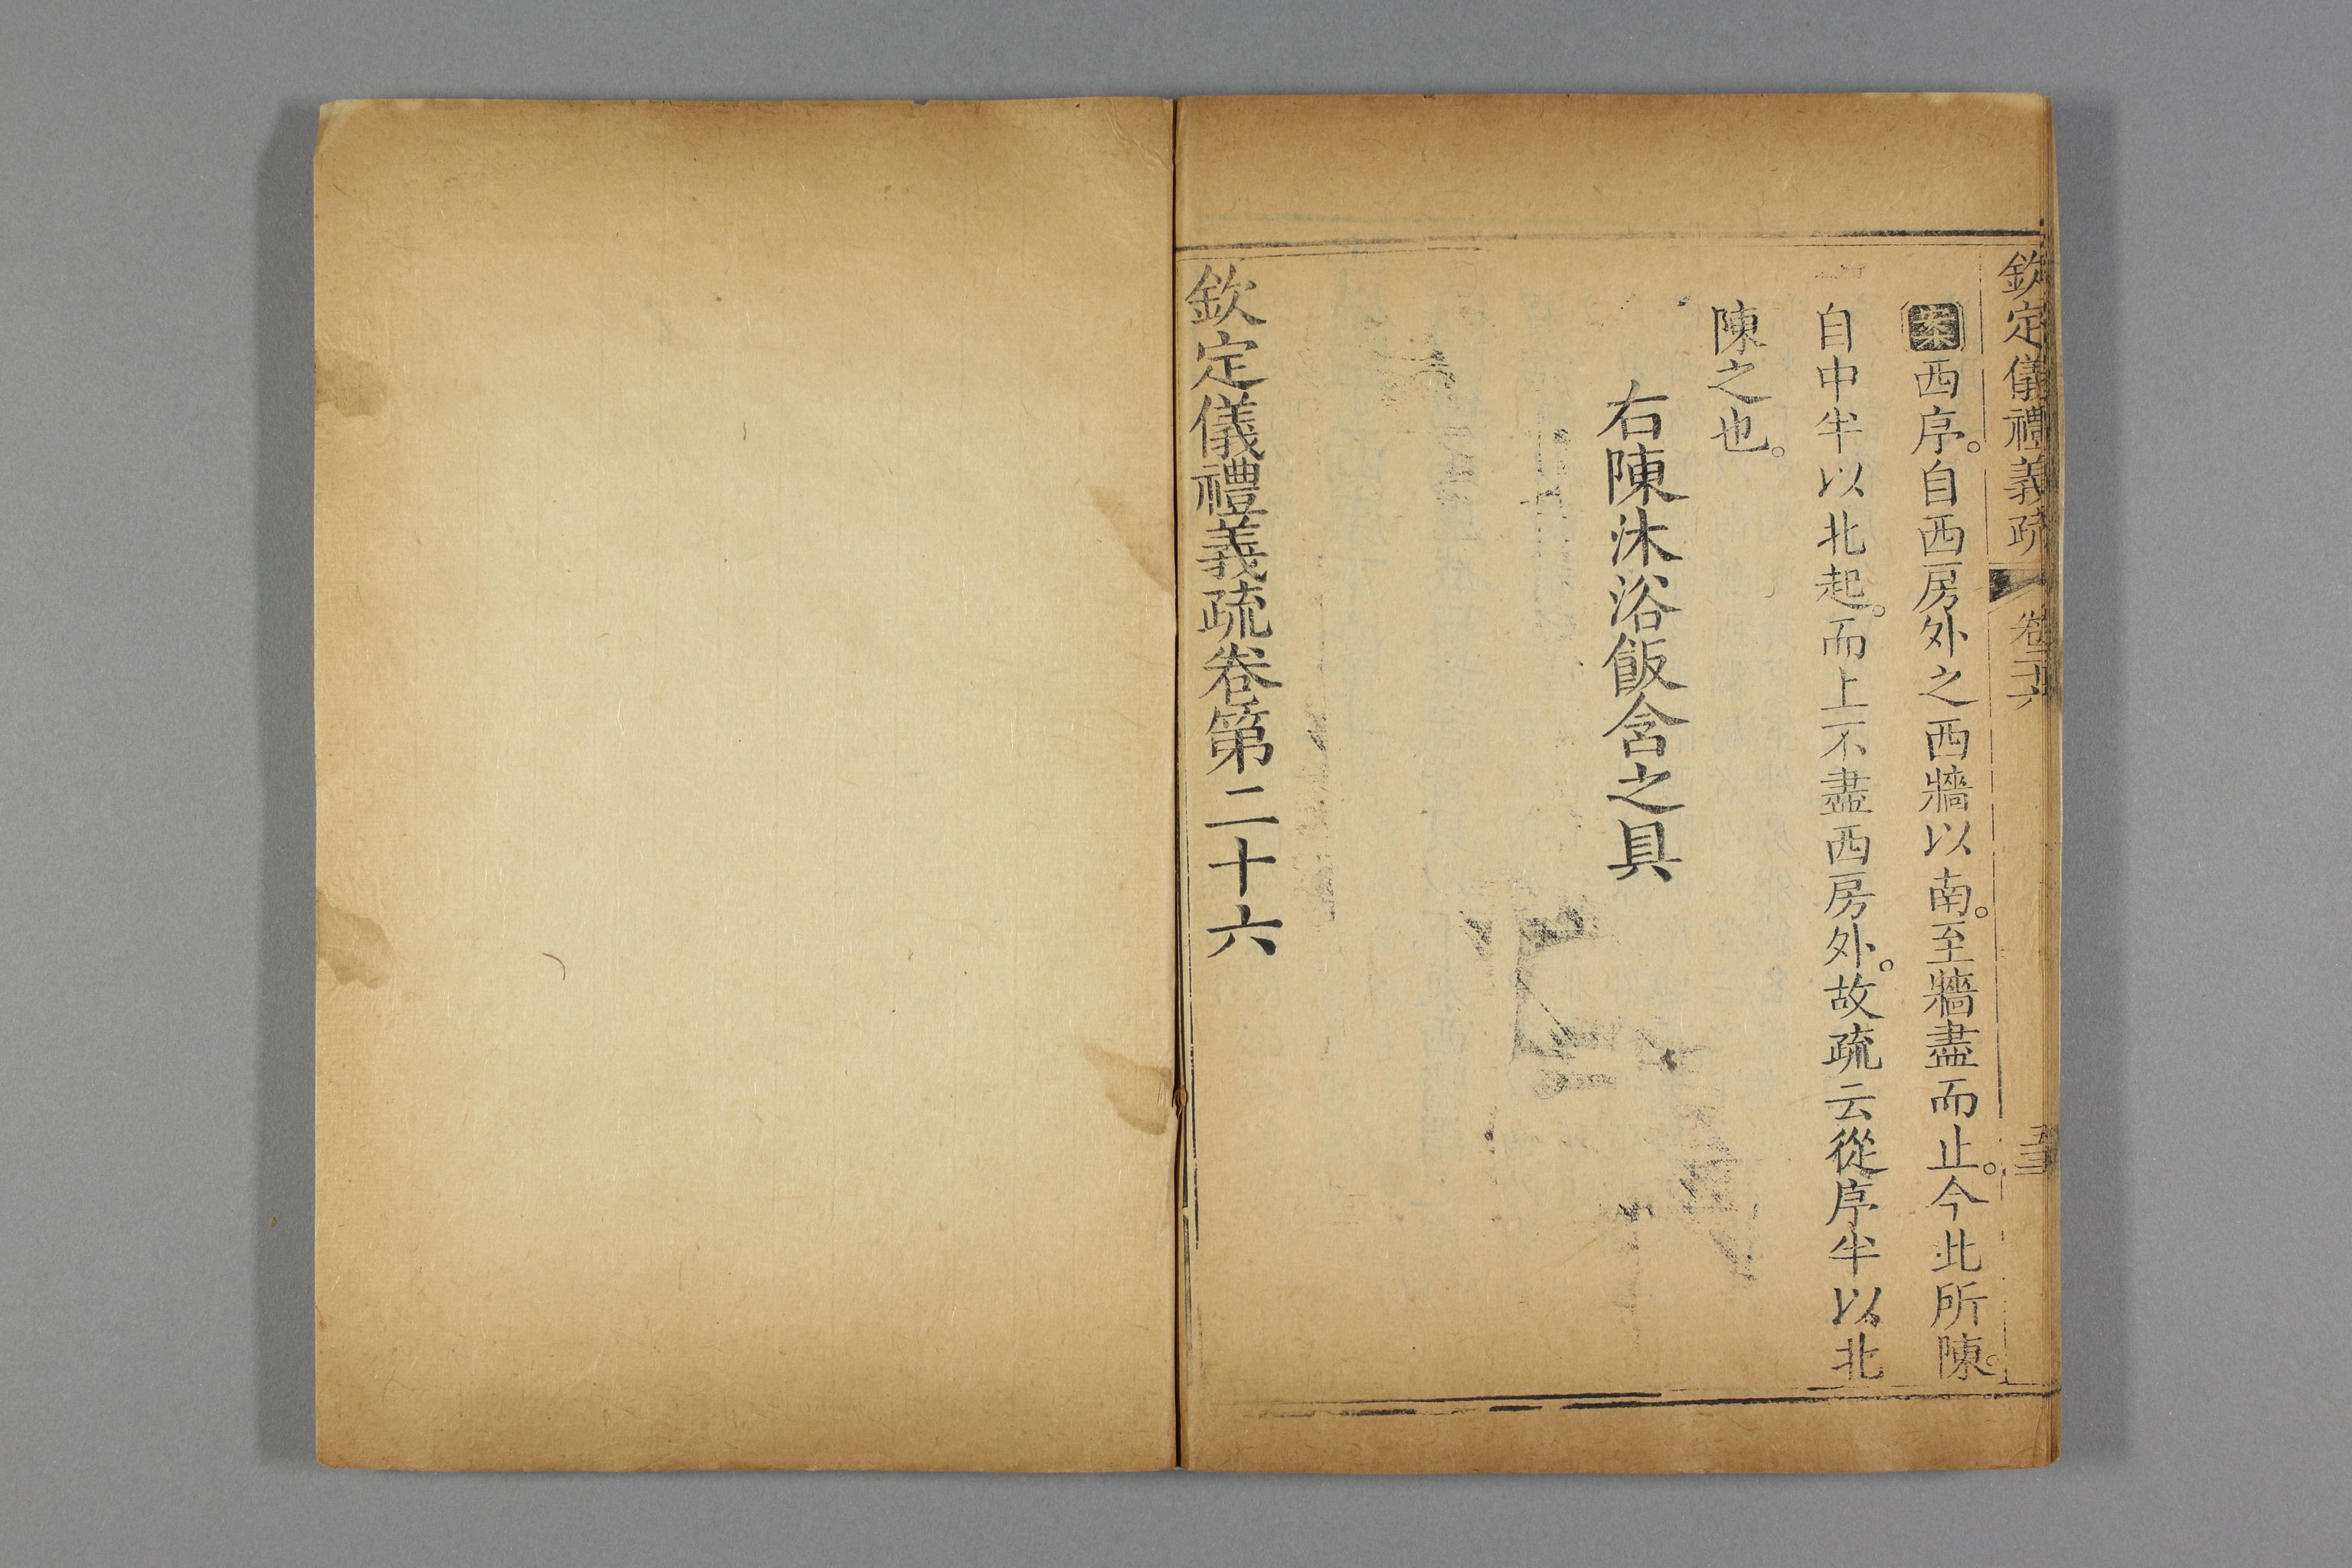 欽定儀禮義疏 卷二十六 五三
案西序。自西房外之西牆以南。至牆盡而止。今此所陳。
自中半以北起。而上不盡西房外。故疏云從序半以北
陳之也。
右陳沐浴飯含之具
欽定儀禮義疏卷第二十六